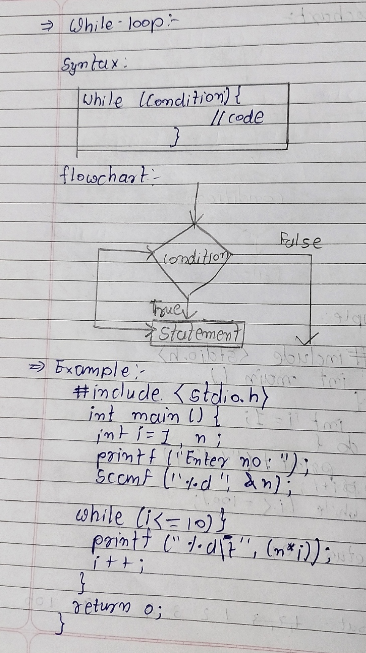 ⇒ While-loop:-
Syntax:
While (Condition) {
//code
}
flowchart:-
False
condition
True
Statement
⇒ Example:-
#include <stdio.h>
int main () {
int i = 1, n;
printf ("Enter no: ");
Scanf ("%d", &n);
while (i <= 10) {
printf ("%d\t", (n*i));
i++;
}
return 0;
}